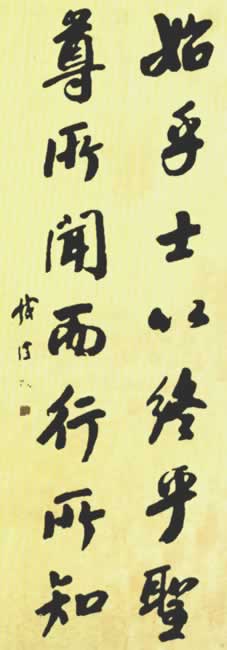 始乎士以终乎聖
尊所聞而行所知